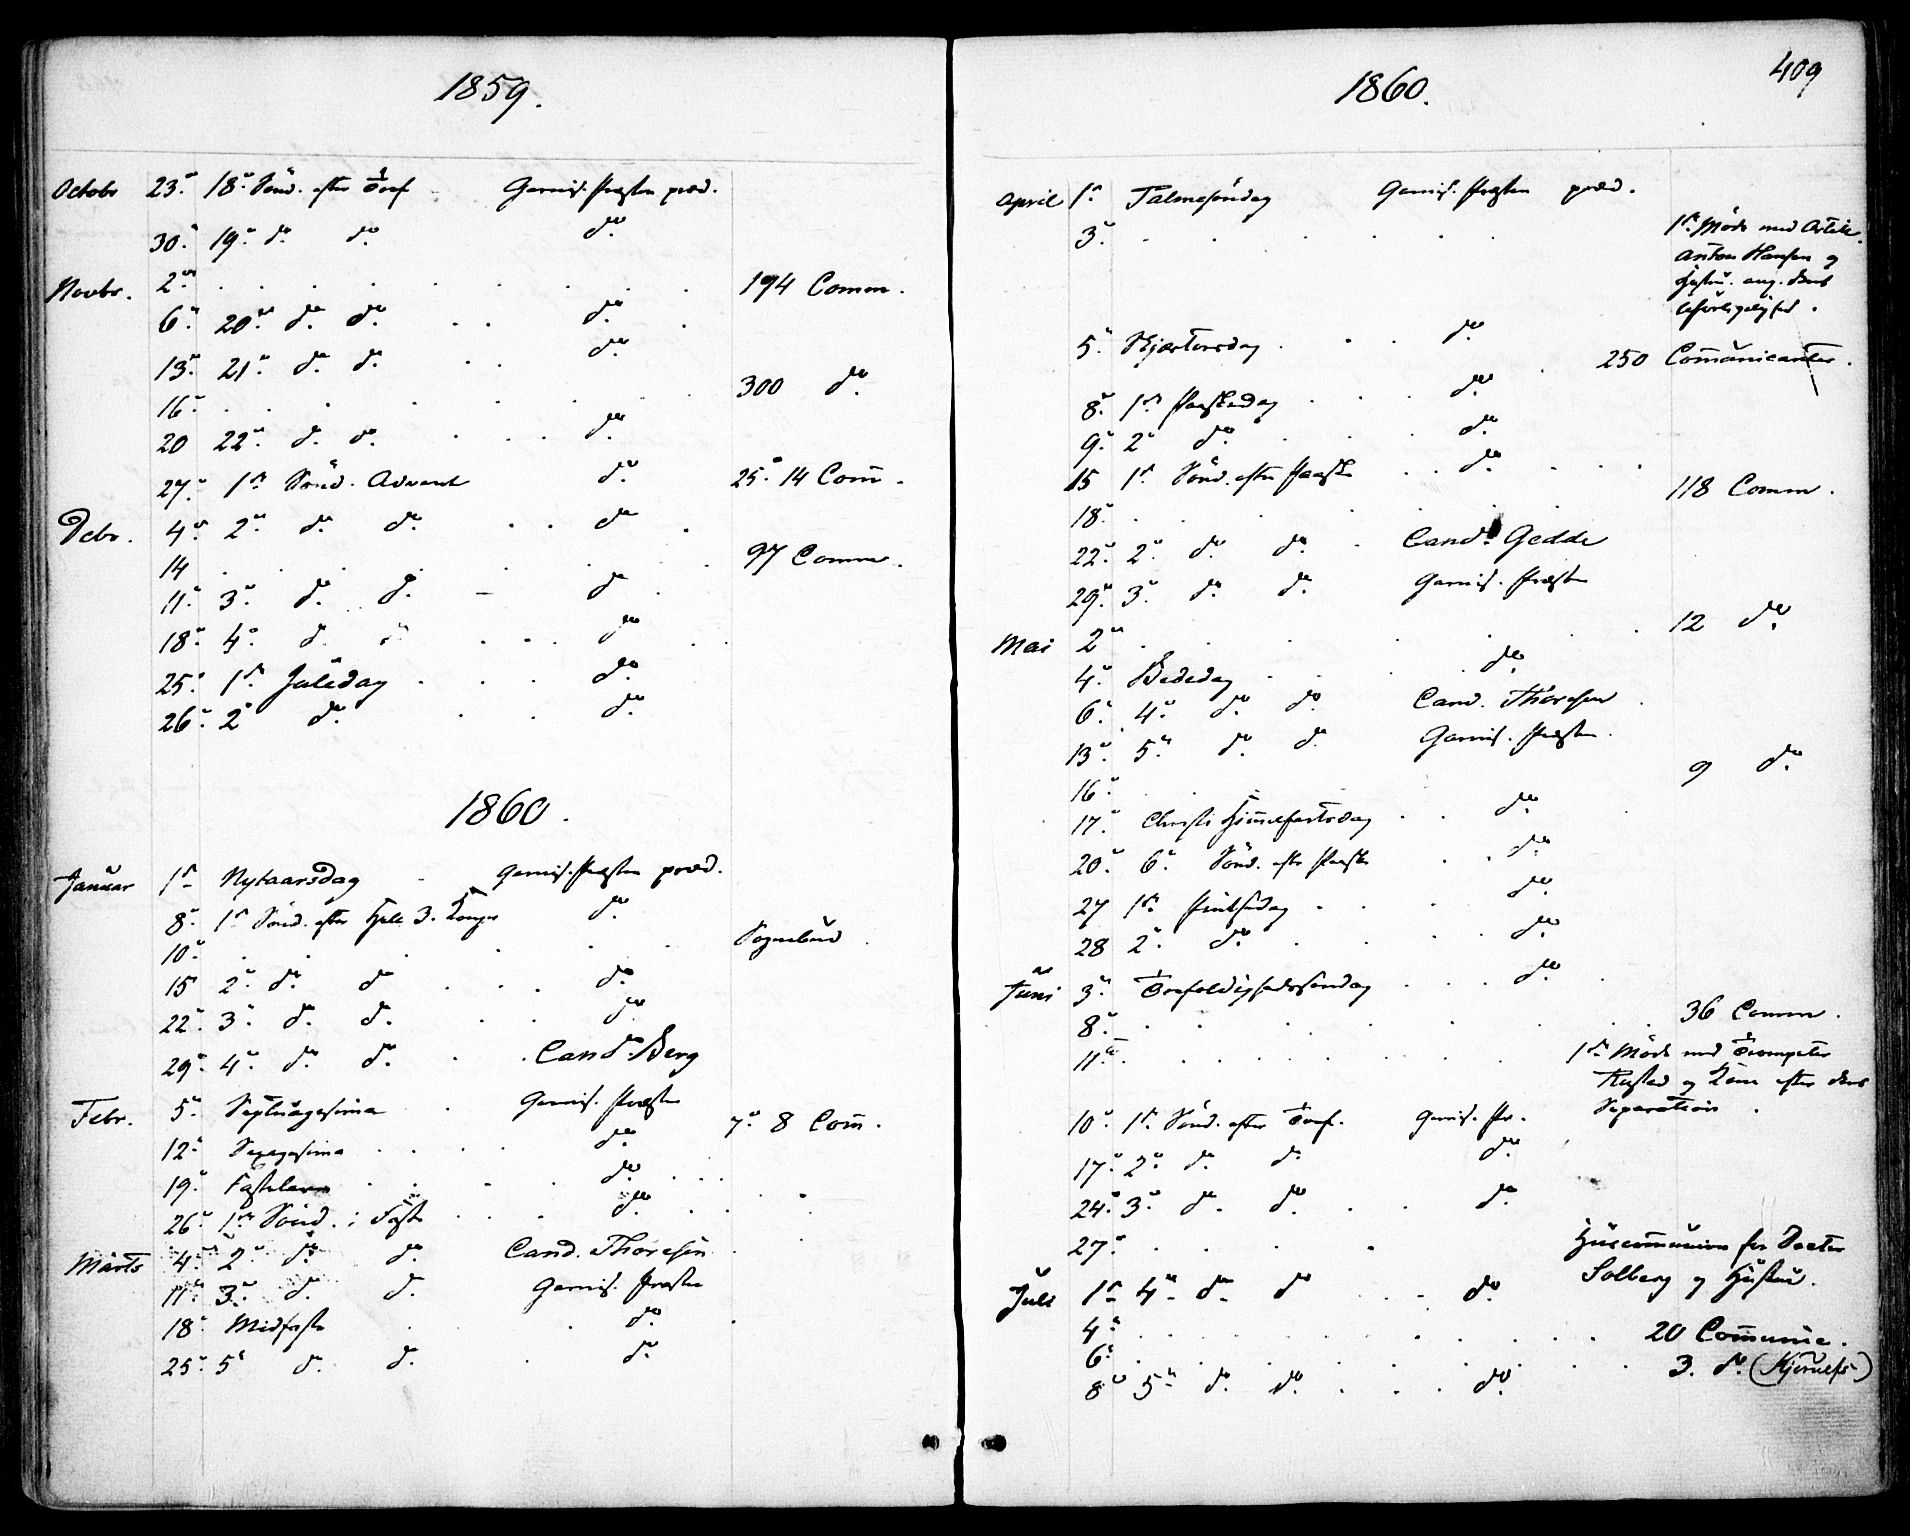 1859.
Octobr 23. 18. Sönd. efter Tref Garnis. Præsten præd.
30. 19. d. d. do
Novbr. 2 . . . . . . . . 194 Comm.
6. 20. d. d. . . do
13. 21. d. d. . . do
16. . . . . . . . 300 do.
20 22. d. d. . . . do.
27. 1ste Sönd. Advent do. 25. 14 Com̄.
Debr. 4. 2. d. d. . . do
14 . . . . . . . 97 Comm.
11. 3. d. d. - do
18. 4. d. d. . . . do
25. 1ste Juledag . . . do.
26. 2 do. . . do.
1860.
Januar 1ste Nytaarsdag - Garnis. Præsten præd.
8. 1ste Sönd. efter Hell. 3. Konger do
10. . . . . . . Sognebud.
15 2. do. do . . . do
22. 3. d. d. . . do
29. 4. do. do. . . Candt. Berg
Febr. 5. Septuagesima . Garnis. Præsten 7. 8 Com̄.
12. Sexagesima . . . . do.
19. Fastelavn . . . . do.
26. 1ste Sönd. i Faste . . . do.
Marts 4. 2. d. d. Cand. Thoresen
11. 3. d. d. Garnis. Præsten
18. Midfaste . . do.
25. 5 d. d. . do.
409
1860.
April 1ste Palmesöndag Garnis. Præsten præd.
3. . . . . . . 1ste Möde med Artill.
Anton Hansen og
Hustru. ang. deres
Uforligelighed.
5. Skjærtorsdag . . . do.
250 Com̄unicanter.
8. 1ste Paaskedag . . . do.
9. 2 do. . . . do.
15 1ste Sönd. efter Paaske . . do. . . .
18. . . . . . . 118 Comm.
22. 2. do. do. . Candt. Gedde
29. 3. do. do. Garnis. Præsten
Mai 2 . . . . . . 12 do.
4. Bededag . . . do.
6. 4. do. do. Cand. Thoresen
13. 5. do. do Garnis. Præsten.
16. . . 9 do.
17. Christi Him̄elfartsdag . . do.
20. 6. Sönd. eftr Paaske . . do.
27 1ste Pintsedag . . . do.
28 2. do. . . . . do.
Juni 3. Trefoldighedssöndag . . . do.
8. . . . . . . . 36 Comm.
11. . . . . . . . 1ste Möde med Trompeter
Rustad og Kone efter deres
Separation.
10. 1ste Sönd. efter Tref. Garnis. Pr.
17. 2. do. do. do.
24. 3. do. do. . . do.
27. . . . . . Huuscom̄union for Doctor
Solberg og Hustru.
Juli 1ste 4. do. do . . . do.
4. . . . . . . . . . 20 Com̄unic.
6. . . . . . . . . . 3. do.
8 5. do. do. . . . do.